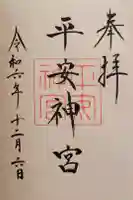 奉拝
平安神宮
令和六年 十二月六日